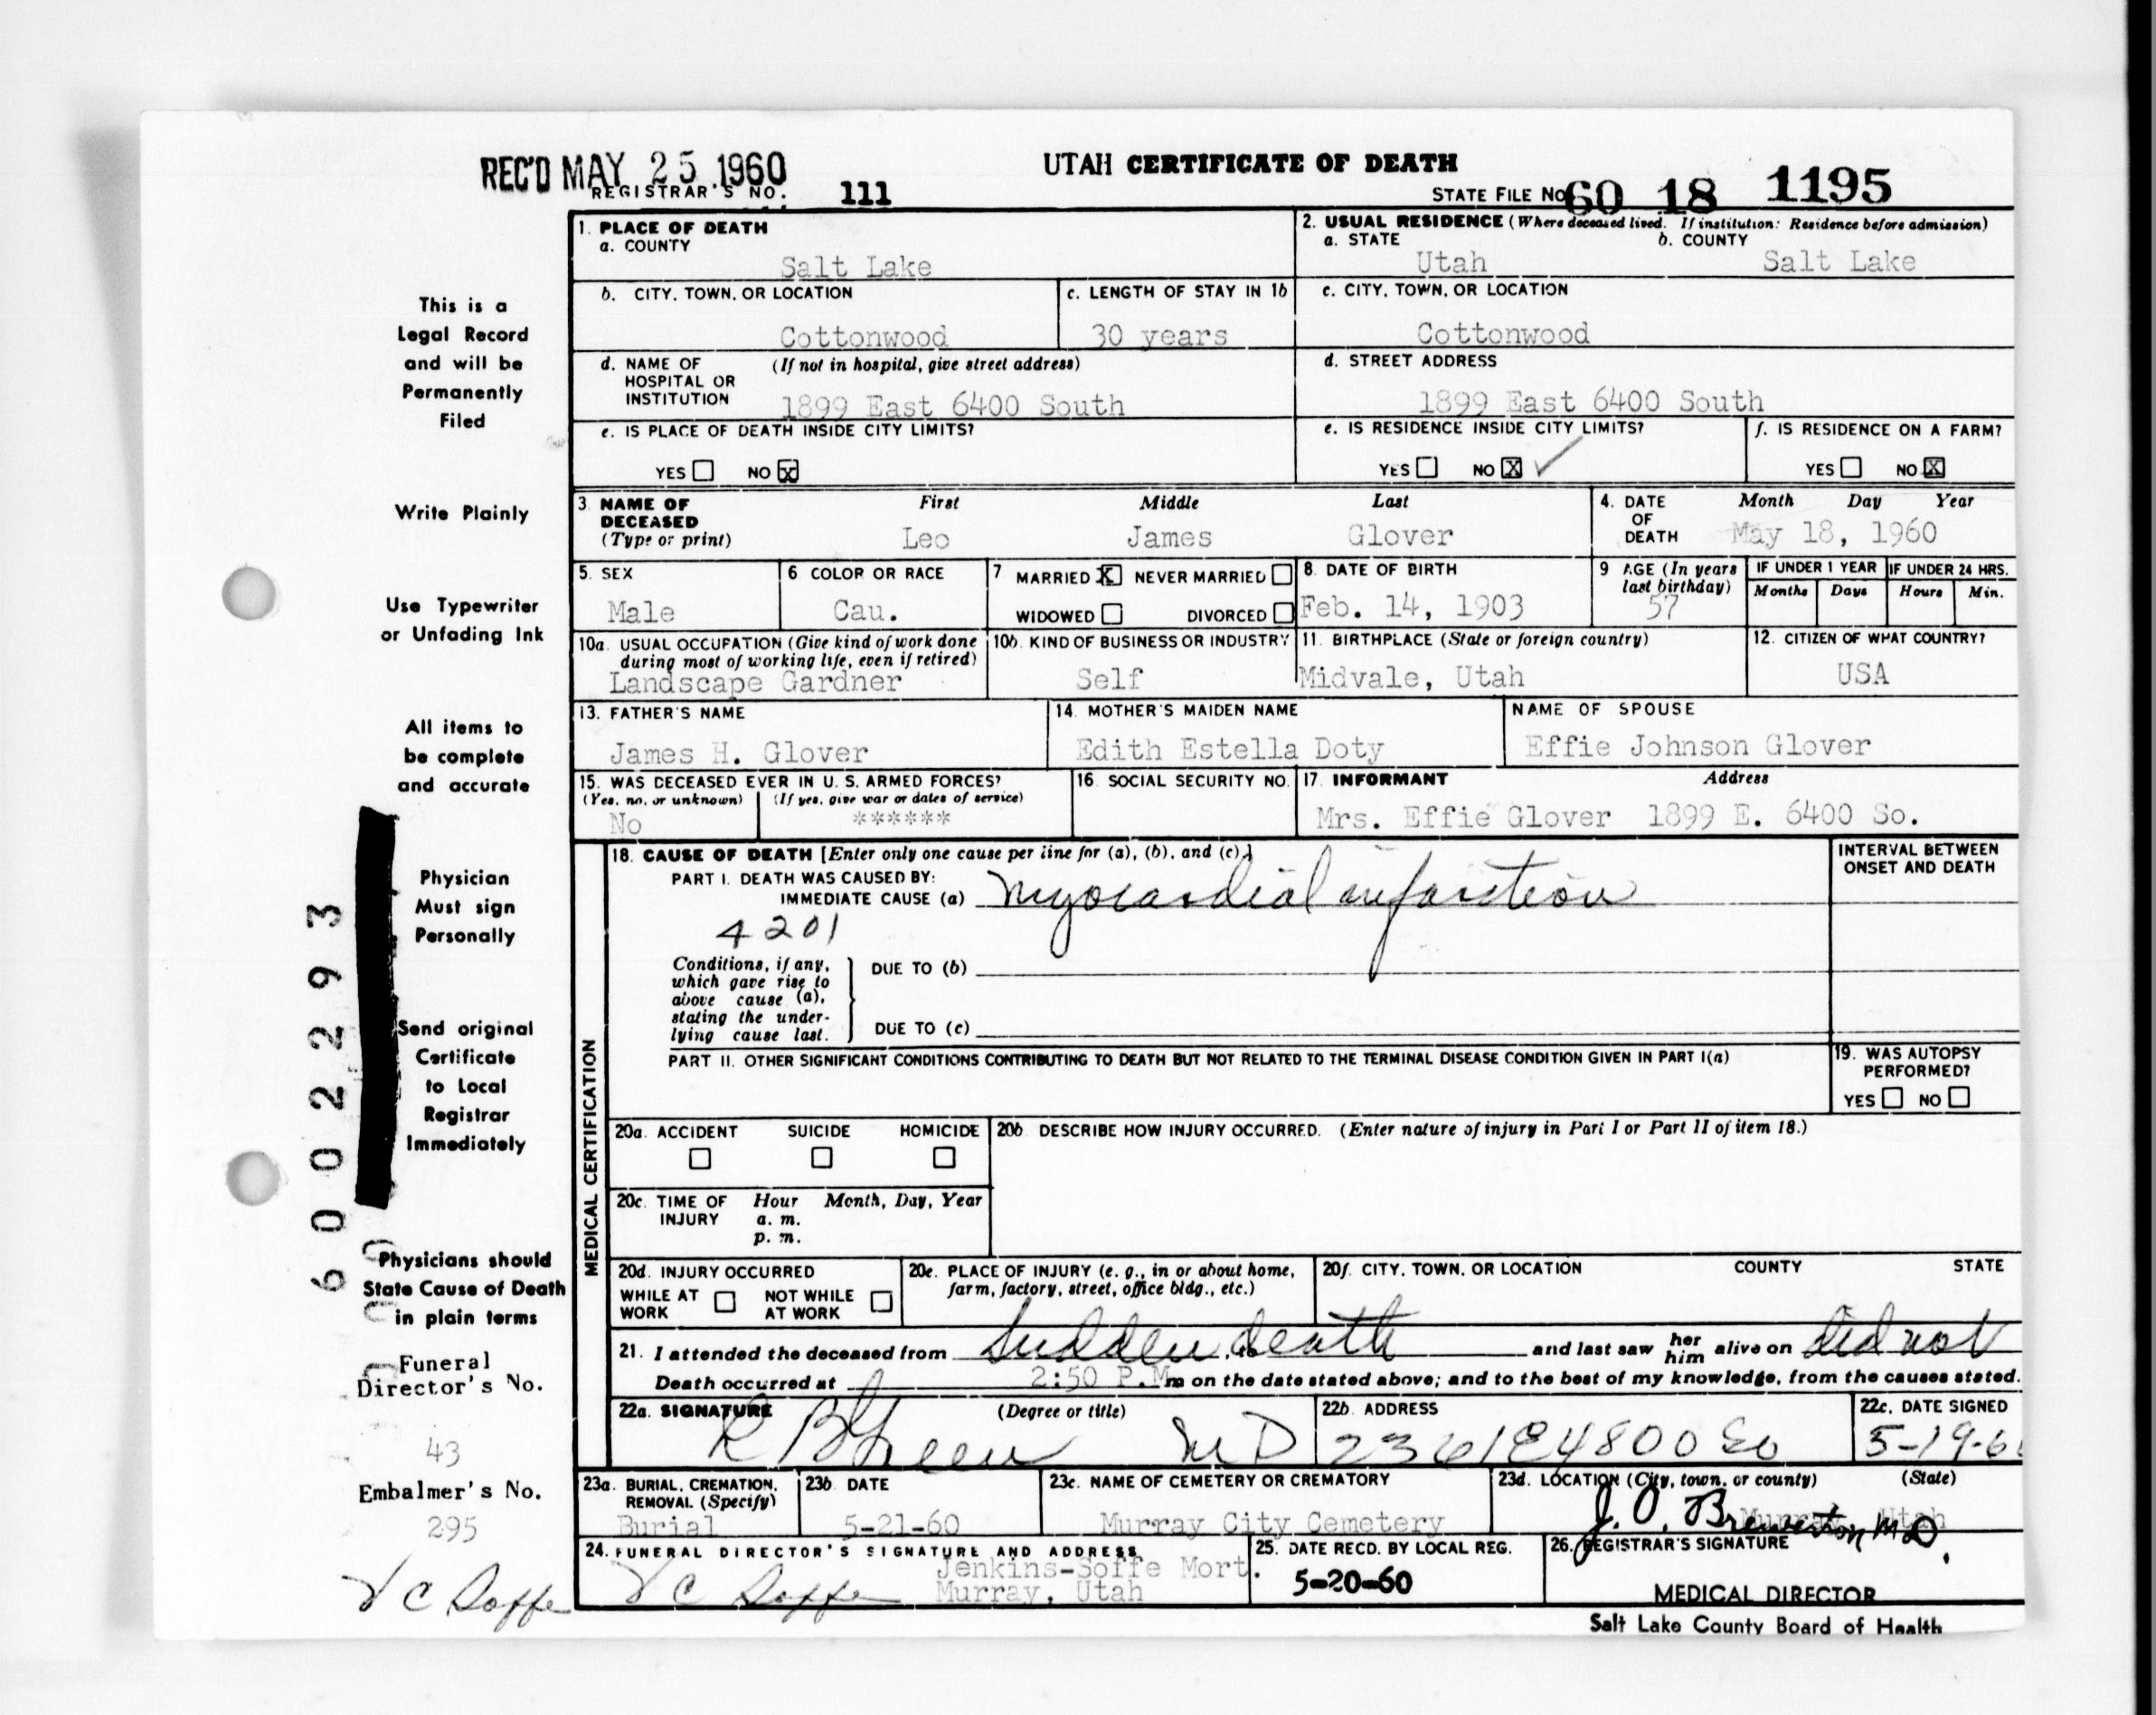 REC'D MAY 25 1960
UTAH CERTIFICATE OF DEATH
REGISTRAR'S NO. 111
STATE FILE NO. 60 18 1195
1. PLACE OF DEATH
a. COUNTY
Salt Lake
2. USUAL RESIDENCE (Where deceased lived. If institution: Residence before admission)
a. STATE b. COUNTY
Utah Salt Lake
b. CITY, TOWN, OR LOCATION
Cottonwood
c. LENGTH OF STAY IN 1b
30 years
c. CITY, TOWN, OR LOCATION
Cottonwood
d. NAME OF HOSPITAL OR INSTITUTION (If not in hospital, give street address)
1899 East 6400 South
d. STREET ADDRESS
1899 East 6400 South
e. IS PLACE OF DEATH INSIDE CITY LIMITS?
YES NO X
e. IS RESIDENCE INSIDE CITY LIMITS?
YES NO X
f. IS RESIDENCE ON A FARM?
YES NO X
3. NAME OF DECEASED (Type or print)
First Middle Last
Leo James Glover
4. DATE OF DEATH
Month Day Year
May 18, 1960
5. SEX
Male
6 COLOR OR RACE
Cau.
7 MARRIED X NEVER MARRIED
WIDOWED DIVORCED
8. DATE OF BIRTH
Feb. 14, 1903
9 AGE (In years last birthday)
57
IF UNDER 1 YEAR
Months Days
IF UNDER 24 HRS.
Hours Min.
10a. USUAL OCCUPATION (Give kind of work done during most of working life, even if retired)
Landscape Gardner
10b. KIND OF BUSINESS OR INDUSTRY
Self
11. BIRTHPLACE (State or foreign country)
Midvale, Utah
12. CITIZEN OF WHAT COUNTRY?
USA
13. FATHER'S NAME
James H. Glover
14. MOTHER'S MAIDEN NAME
Edith Estella Doty
NAME OF SPOUSE
Effie Johnson Glover
15. WAS DECEASED EVER IN U. S. ARMED FORCES?
(Yes, no, or unknown) (If yes, give war or dates of service)
No ******
16. SOCIAL SECURITY NO.
17. INFORMANT Address
Mrs. Effie Glover 1899 E. 6400 So.
MEDICAL CERTIFICATION
18. CAUSE OF DEATH [Enter only one cause per line for (a), (b), and (c).]
INTERVAL BETWEEN ONSET AND DEATH
PART I. DEATH WAS CAUSED BY:
IMMEDIATE CAUSE (a) myocardial infarction
4201
Conditions, if any, which gave rise to above cause (a), stating the underlying cause last.
DUE TO (b)
DUE TO (c)
PART II. OTHER SIGNIFICANT CONDITIONS CONTRIBUTING TO DEATH BUT NOT RELATED TO THE TERMINAL DISEASE CONDITION GIVEN IN PART I(a)
19. WAS AUTOPSY PERFORMED?
YES NO
20a. ACCIDENT SUICIDE HOMICIDE
20b DESCRIBE HOW INJURY OCCURRED. (Enter nature of injury in Part I or Part II of item 18.)
20c. TIME OF INJURY Hour Month, Day, Year
a. m.
p. m.
20d. INJURY OCCURRED
WHILE AT WORK NOT WHILE AT WORK
20e. PLACE OF INJURY (e. g., in or about home, farm, factory, street, office bldg., etc.)
20f. CITY, TOWN, OR LOCATION COUNTY STATE
21. I attended the deceased from Sudden death and last saw her him alive on did not
Death occurred at 2:50 P.M. m on the date stated above; and to the best of my knowledge, from the causes stated.
22a. SIGNATURE (Degree or title)
R B Green MD
22b. ADDRESS
2361 E 4800 So
22c. DATE SIGNED
5-19-6
23a. BURIAL, CREMATION, REMOVAL (Specify)
Burial
23b DATE
5-21-60
23c. NAME OF CEMETERY OR CREMATORY
Murray City Cemetery
23d. LOCATION (City, town, or county) (State)
Murray, Utah
24. FUNERAL DIRECTOR'S SIGNATURE AND ADDRESS
V C Soffe
Jenkins-Soffe Mort.
Murray, Utah
25. DATE RECD. BY LOCAL REG.
5-20-60
26. REGISTRAR'S SIGNATURE
J. O. Brewerton M D.
MEDICAL DIRECTOR
Salt Lake County Board of Health
This is a
Legal Record
and will be
Permanently
Filed
Write Plainly
Use Typewriter
or Unfading Ink
All items to
be complete
and accurate
Physician
Must sign
Personally
Send original
Certificate
to Local
Registrar
Immediately
Physicians should
State Cause of Death
in plain terms
Funeral
Director's No.
43
Embalmer's No.
295
V C Soffe
6002293